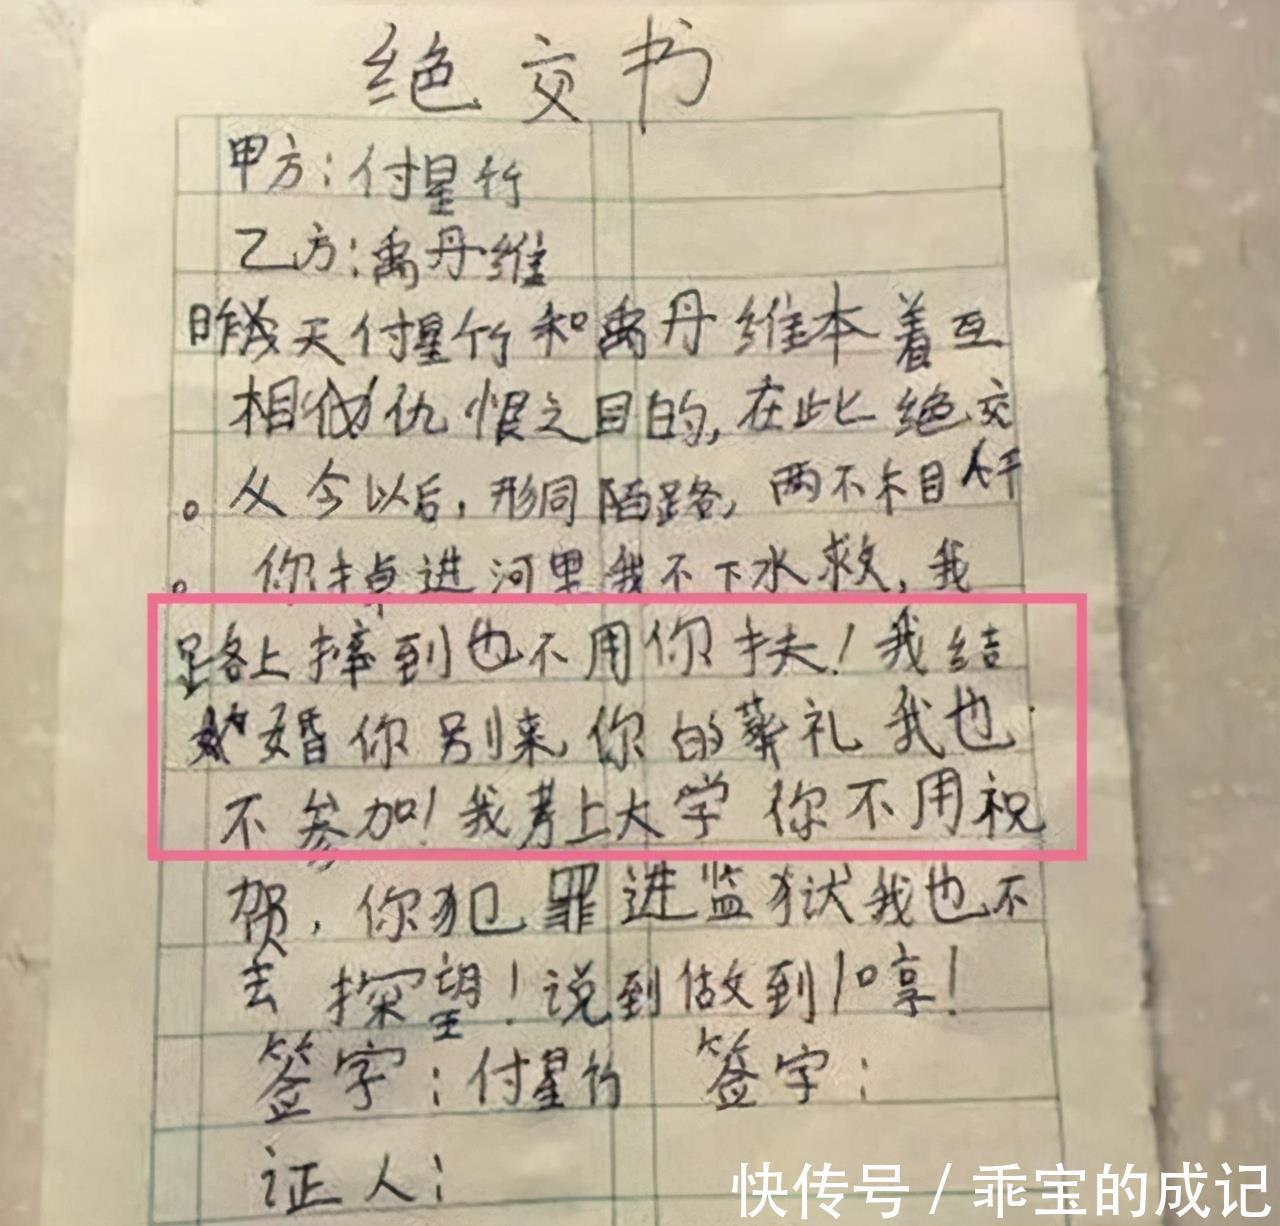 绝交书
甲方：付星竹
乙方：禹丹维
昨天付星竹和禹丹维本着互
相仇恨之目的，在此绝交
。从今以后，形同陌路，两不相干
。你掉进河里我不下水救，我
路上摔到也不用你扶！我结
婚你别来，你的葬礼我也
不参加！我考上大学你不用祝
贺，你犯罪进监狱我也不
去探望！说到做到！哼！
签字：付星竹 签字：
证人：
快传号/乖宝的成记